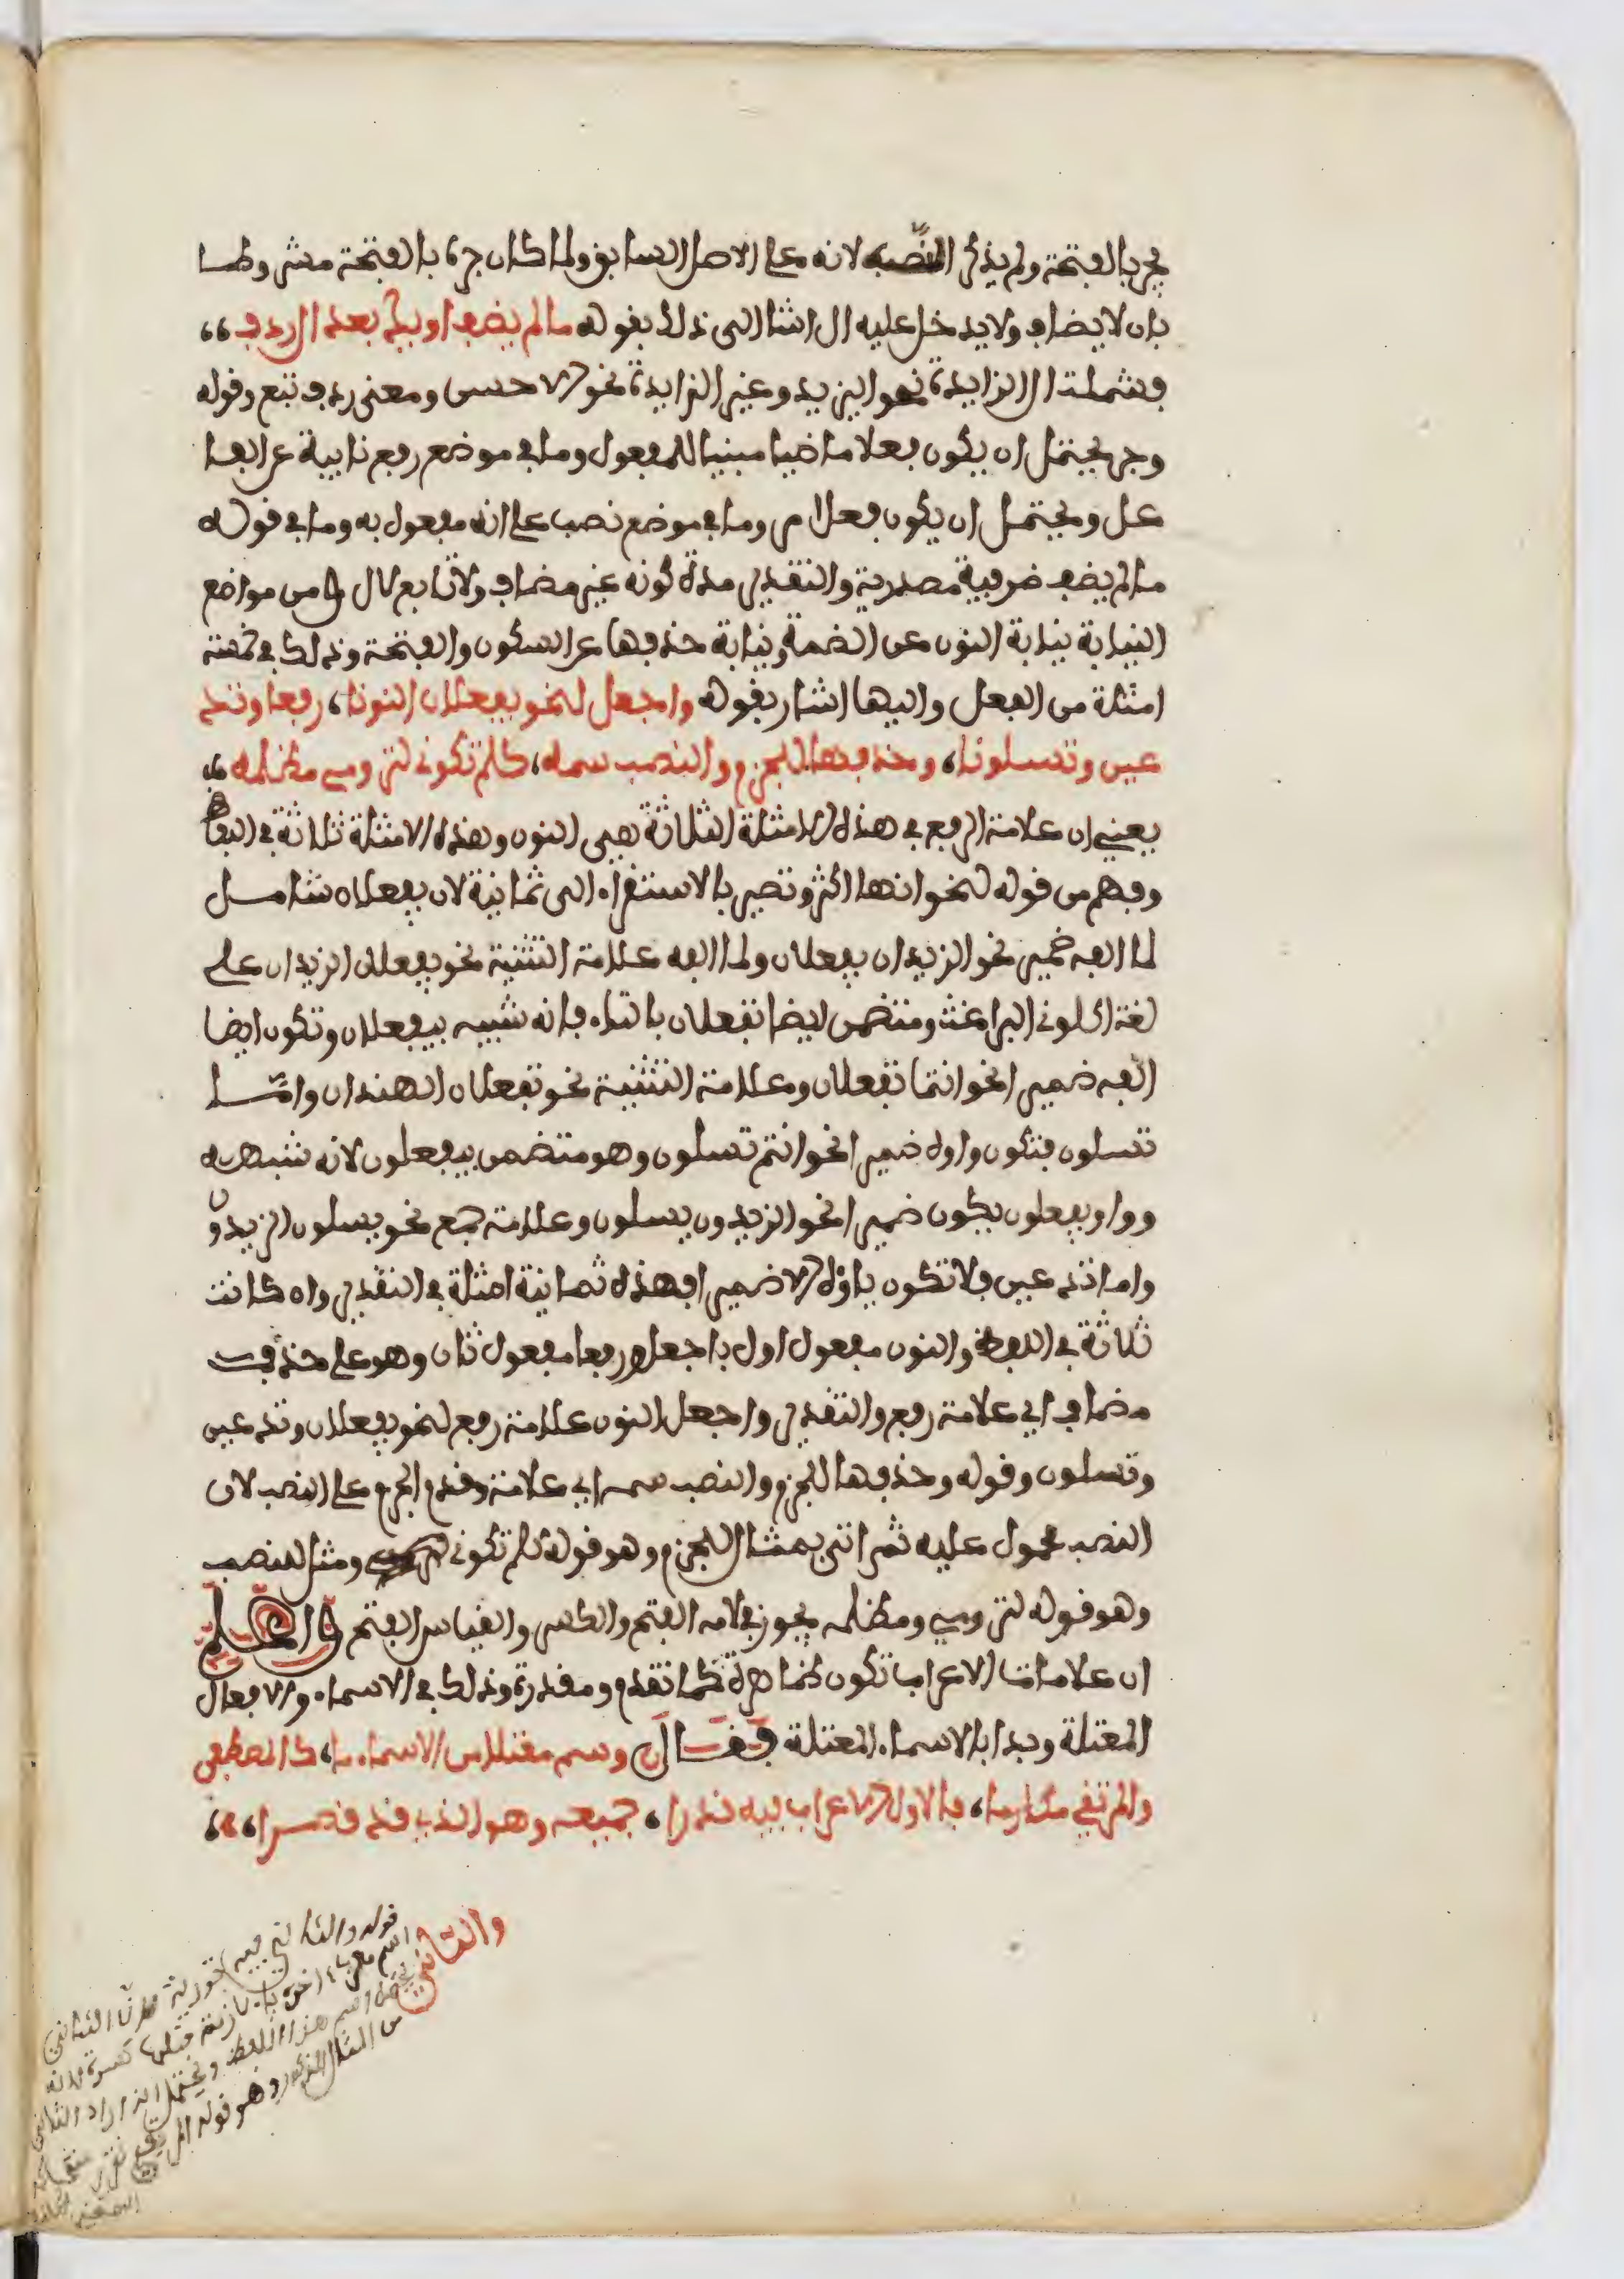 يجر بالفتحة ولم يذكر النصب لانه على الاصل السابق ولما كان جره بالفتحة مشروطا
بان لا يضاف ولا يدخل عليه ال اشار الى ذلك بقوله ما لم يضف او يك بعد ال ردف
فشملت ال الزايدة نحو اليزيد وغير الزايدة نحو الاحسن ومعنى ردف تبع وقوله
وجر يحتمل ان يكون فعلا ماضيا مبنيا للمفعول وما في موضع رفع نايبة عن الفا
عل ويحتمل ان يكون فعل امر وما في موضع نصب على انه مفعول به وما في قوله
ما لم يضف ضرفية مصدرية والتقدير مدة كونه غير مضاف ولا تابع لال ومن مواضع
النيابة نيابة النون عن الضمة ونيابة حذفها عن السكون والفتحة وذلك في خمسة
امثلة من الفعل واليها اشار بقوله واجعل لنحو يفعلان النونا، رفعا وتد
عين وتسلونا، وحذفها للجزم والنصب سمه، كلم تكوني لترومي مظلمه
يعني ان علامة الرفع في هذه الامثلة الثلاثة هي النون وهذه الامثلة ثلاثة في اللفظ
وفهم من قوله لنحو انها اكثر وتصير بالاستقراء الى ثمانية لان يفعلان شامل
لما الفه ضمير نحو الزيدان يفعلان ولما الفه علامة التثنية نحو يفعلان الزيدان على
لغة اكلوني البراغيث ومتضمن ايضا تفعلان بالتاء فانه شبيه بيفعلان وتكون ايضا
الفه ضميرا نحو انتما تفعلان وعلامة التثنية نحو تفعلان الهندان واما
تسلون فتكون واوه ضميرا نحو انتم تسلون وهو متضمن بيفعلون لانه شبهه به
وواو يفعلون يكون ضميرا نحو الزيدون يسلون وعلامة جمع نحو يسلون الزيدون
واما تدعين فلا تكون ياؤه الا ضميرا فهذه ثمانية امثلة في التقدير وان كانت
ثلاثة في اللفظ والنون مفعول اول باجعل ورفعا مفعول ثان وهو على حذف
مضاف اي علامة رفع والتقدير واجعل النون علامة رفع لنحو يفعلان وتدعين
وتسلون وقوله وحذفها للجزم والنصب سمه اي علامة وقدم الجزم على النصب لان
النصب محمول عليه ثم اتى بمثال للجزم وهو قوله كلم تكوني ومثل للنصب
وهو قوله لترومي ومظلمه يجوز في لامه الفتح والكسر والقياس الفتح واعلم
ان علامات الاعراب تكون ظاهرة كما تقدم ومقدرة وذلك في الاسماء والافعال
المعتلة وبدا بالاسماء المعتلة فقال وسم معتلا من الاسماء ما، كالمصطفى
والمرتقي مكارما، فالاول الاعراب فيه قدرا، جميعه وهو الذي قد قصرا،
والثاني
قوله والثاني فيه تورية فان الثاني
اسم معرب اخره ياء لازمة قبلها كسرة لانه
هذا اللفظ ويحتمل انه اراد الثاني
من المثال المذكور وهو قوله المرتقي